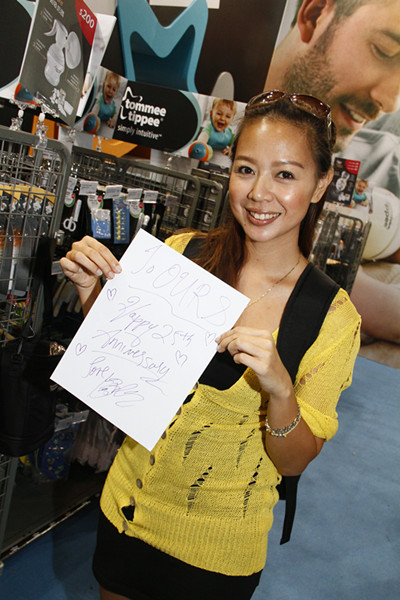 $200
tommee
tippee
simply intuitive
To OURS
Happy 25th
Anniversary